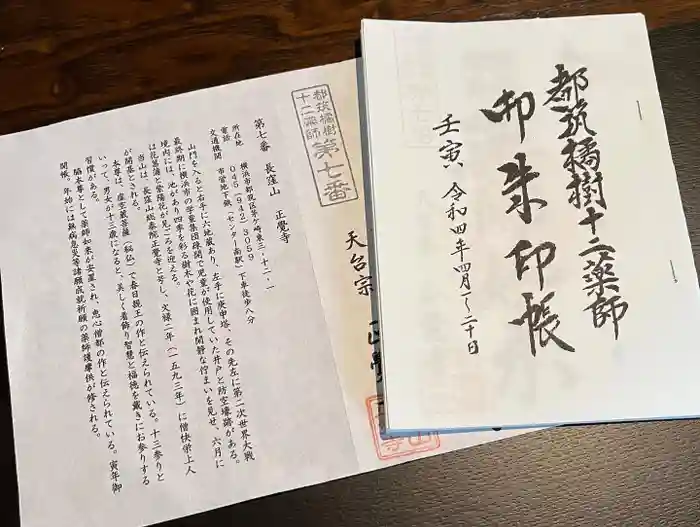 都筑橘樹十二薬師
御朱印帳
壬寅、令和四年四月一~二十日
都筑橘樹
十二薬師
第七番
天台宗
正覺
第七番 長窪山 正覺寺
所在地 横浜市都筑区茅ケ崎東三-十二-一
電話 045(942)3059
交通機関 市営地下鉄(センター南駅)下車徒歩八分
山門を入ると右手に六地蔵あり、左手に庚申塔、その先左に第二次世界大戦
最終期に横浜市の学童集団疎開で児童が使用していた井戸と防空壕跡がある。
境内には、池があり四季を彩る樹木や花に囲まれ閑静な佇まいを見せ、六月に
は花菖蒲と紫陽花が見ごろを迎える。
当山は、長窪山総泰院正覺寺と号し、文禄二年(一五九三年)に僧快栄上人
が開基とされる。
本尊は、虚空蔵菩薩(秘仏)で春日親王の作と伝えられている。十三参りと
いって、男女が十三歳になると、美しく着飾り智慧と福徳を戴きにお参りする
習慣がある。
脇本尊として薬師如来が安置され、恵心僧都の作と伝えられている。寅年御
開帳。年始には無病息災等諸願成就祈願の薬師護摩供が修される。